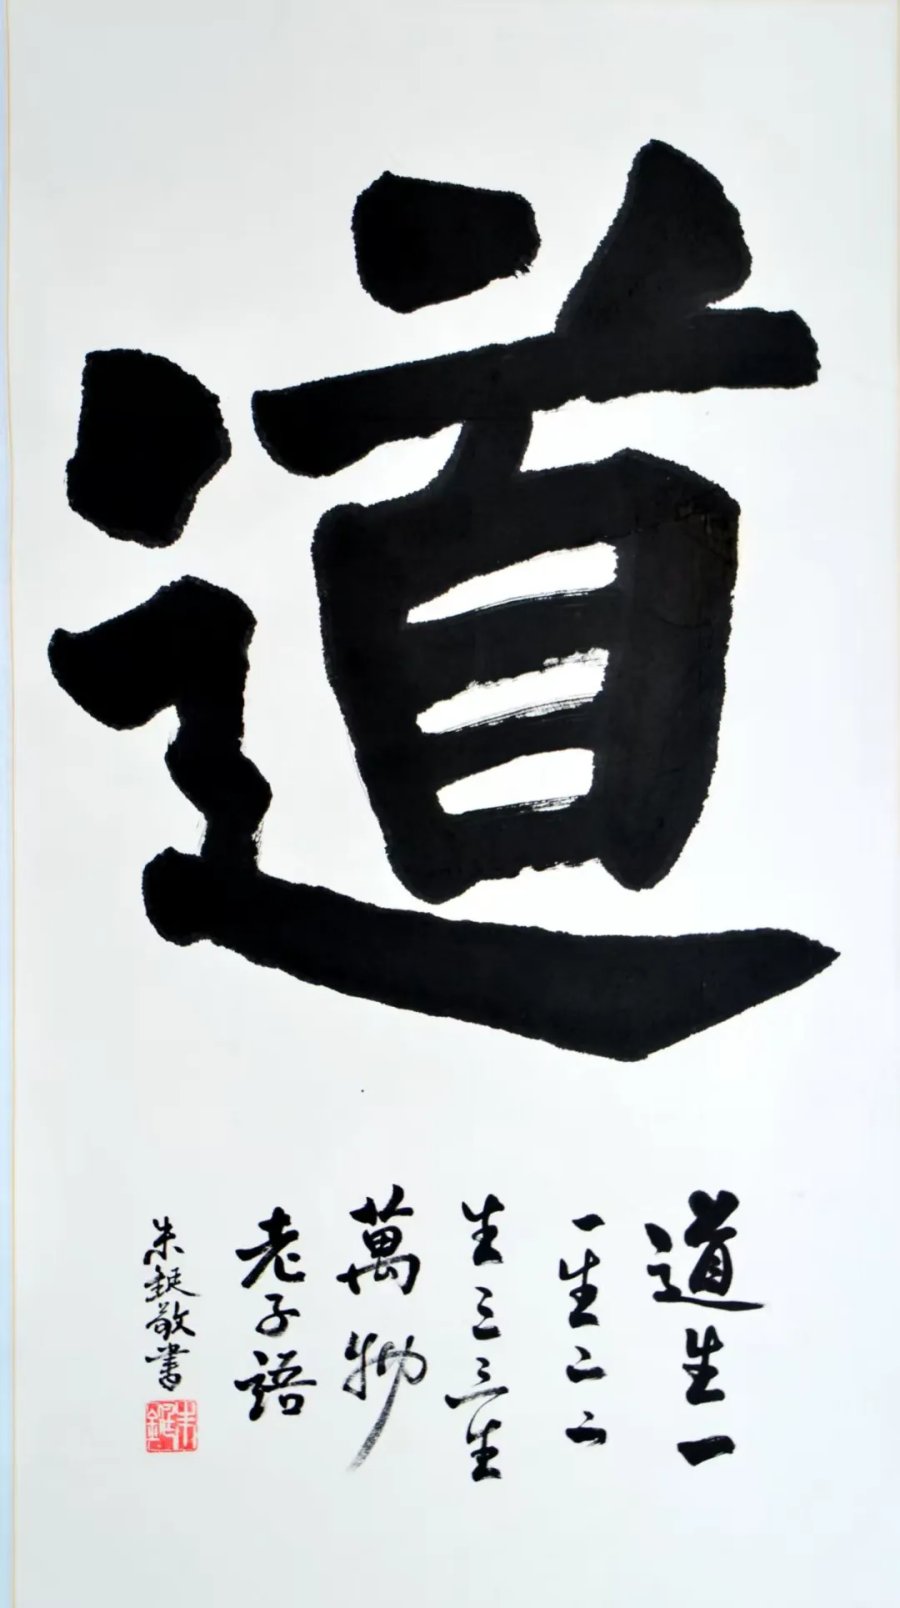 道
道生一
一生二二
生三三生
萬物
老子語
朱鋌敬書
朱鋌